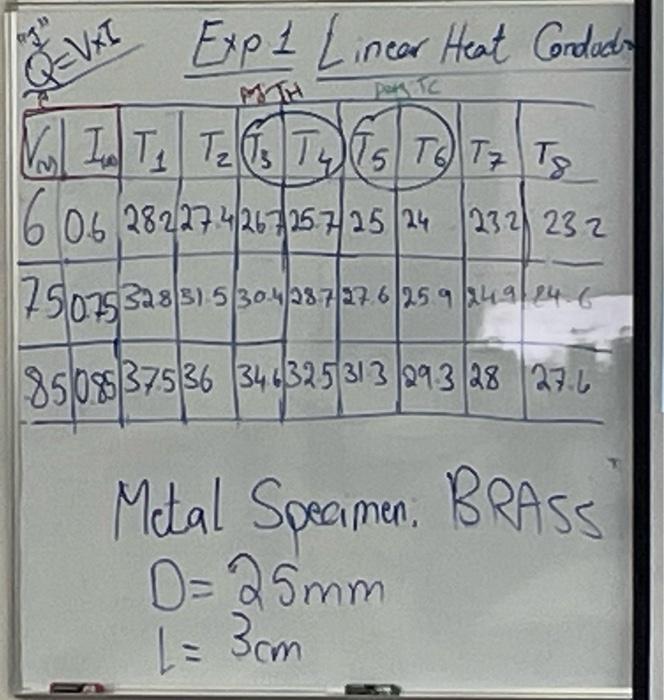 "1"
Q=V×I
Exp 1 Linear Heat Conduct
TH TC
V I T1 T2 T3 T4 T5 T6 T7 T8
6 0.6 28.2 27.4 26.7 25.7 25 24 23.2 23.2
7.5 0.75 32.8 31.5 30.4 28.7 27.6 25.9 24.9 24.6
8.5 0.85 37.5 36 34.6 32.5 31.3 29.3 28 27.6
Metal Specimen: BRASS
D= 25mm
L= 3cm